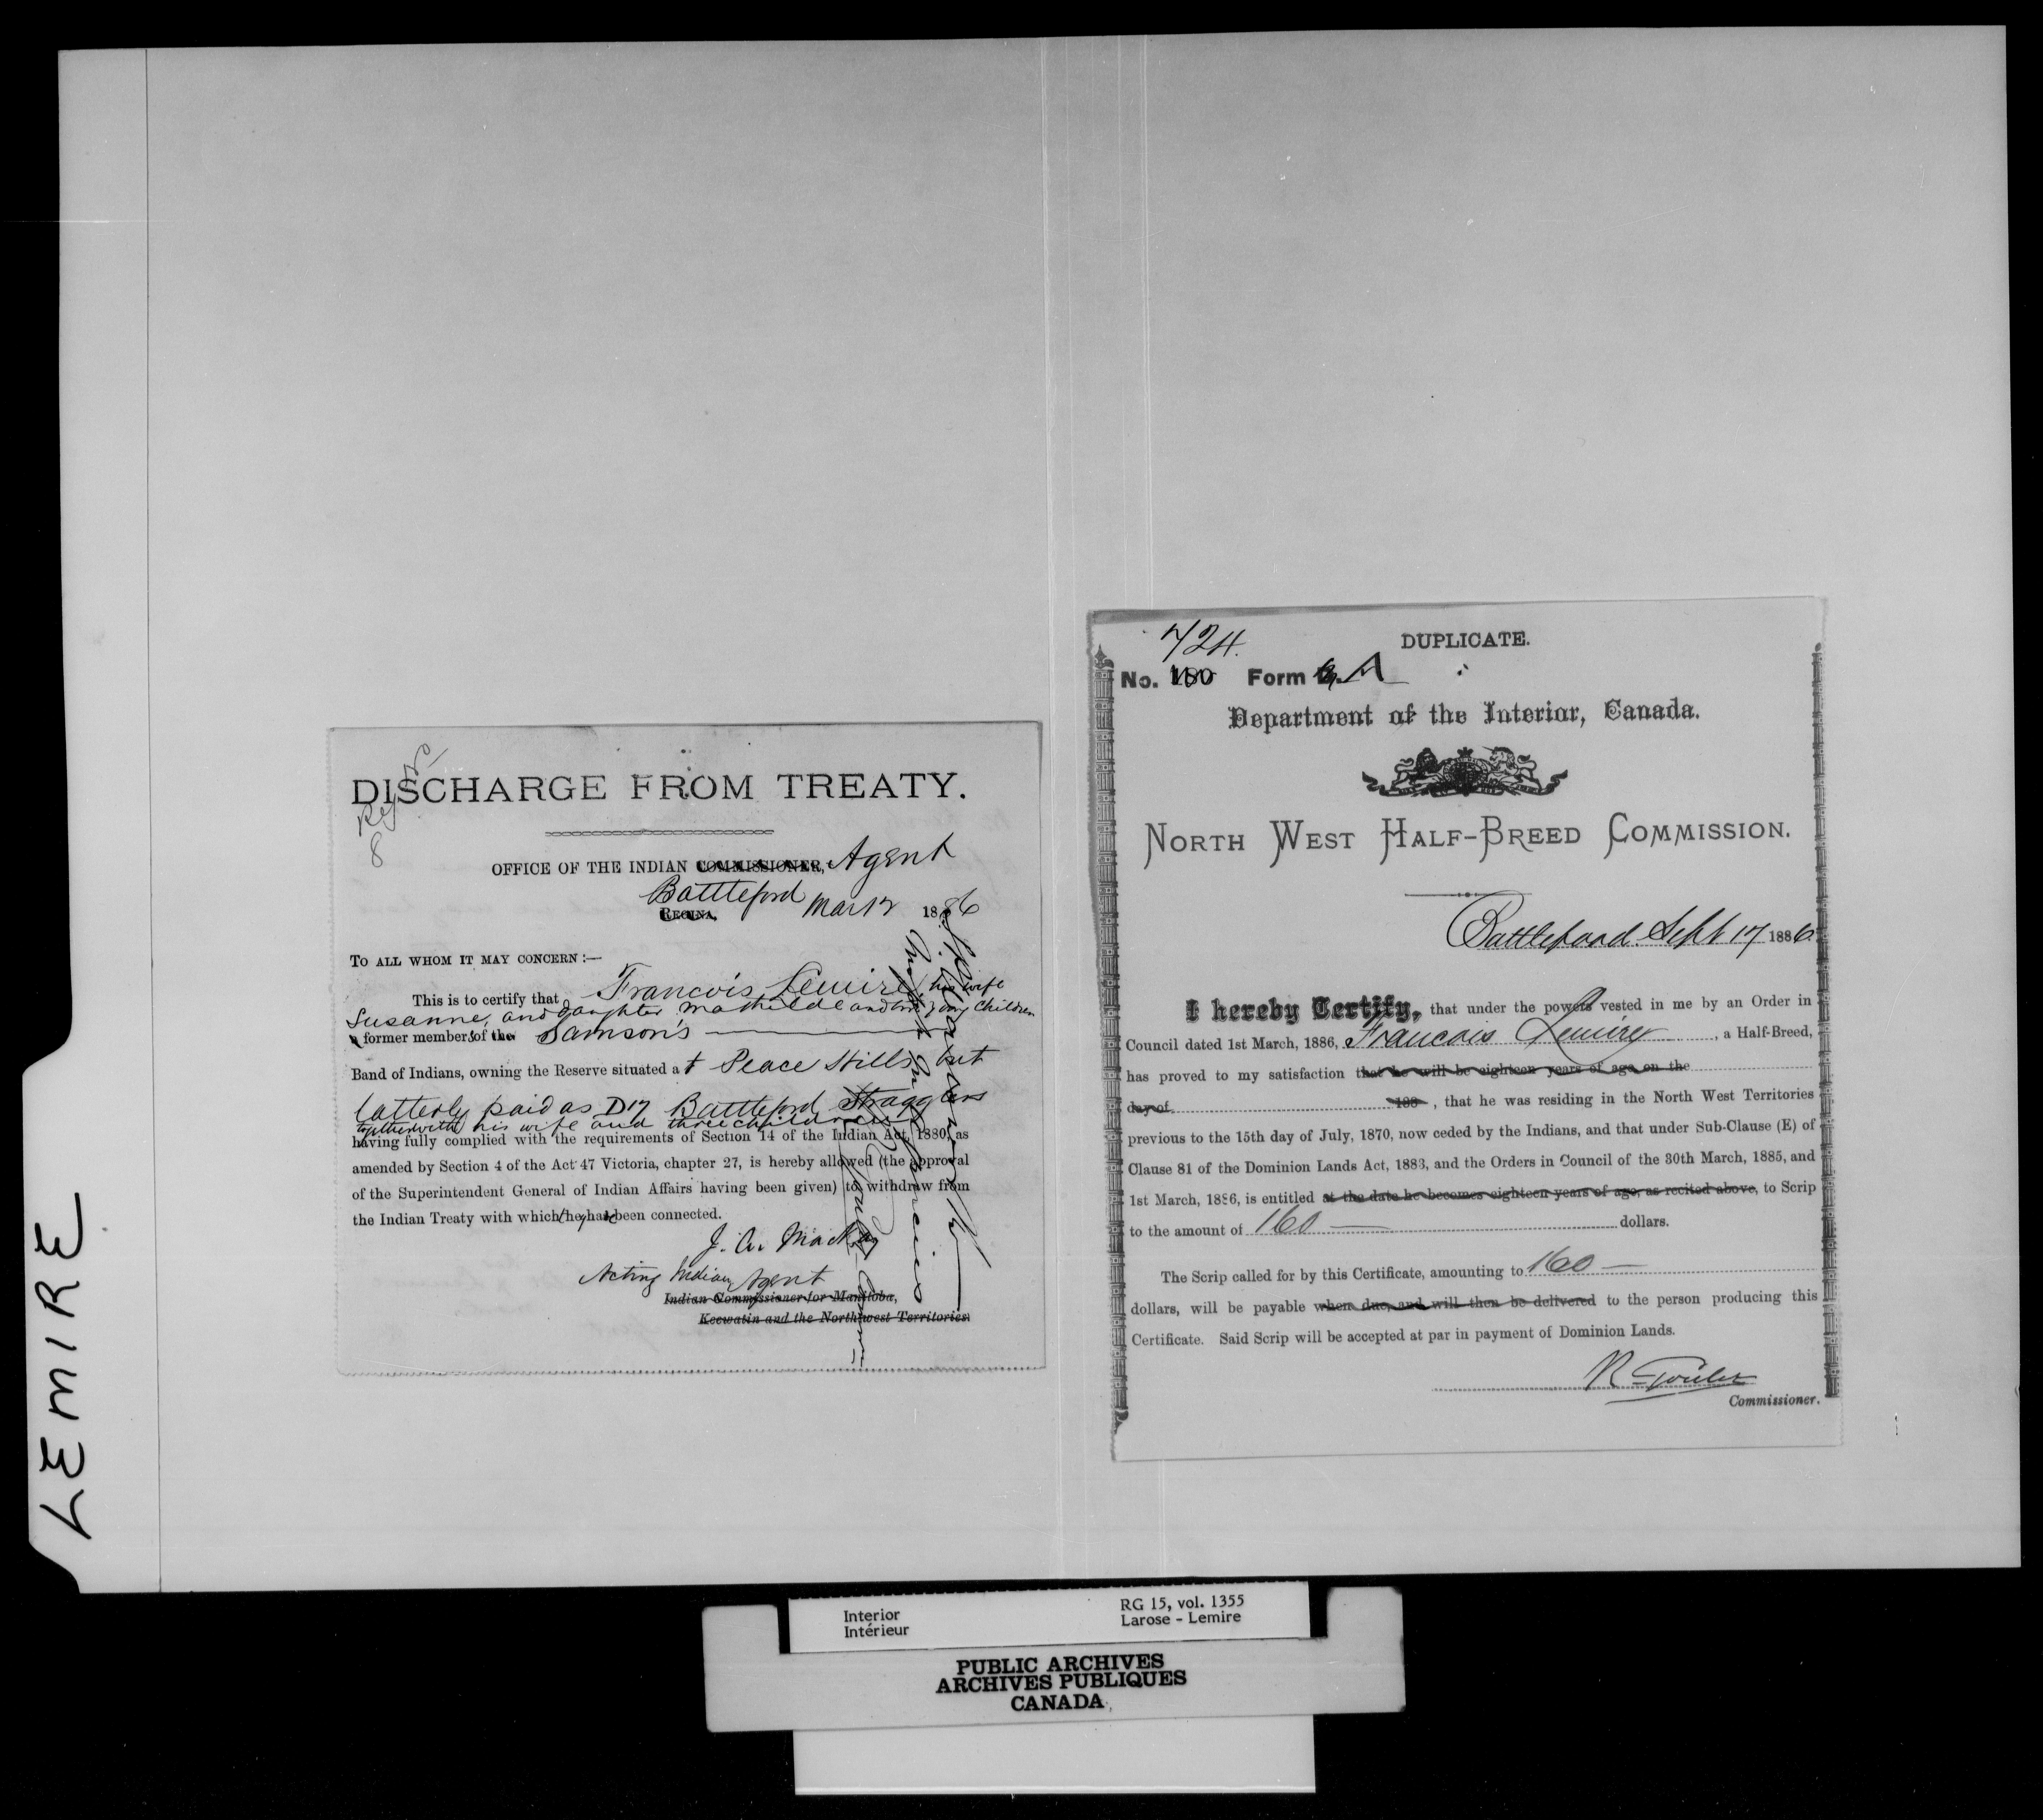 LEMIRE
DISCHARGE FROM TREATY.
Reg
8
OFFICE OF THE INDIAN COMMISSIONER, Agent
Battleford
REGINA, Mar 12 1886
TO ALL WHOM IT MAY CONCERN :—
This is to certify that Francois Lemire, his wife
Susanne, and daughter Mathilde and children
a former members of the Samson's
Band of Indians, owning the Reserve situated at Peace Hills but
latterly paid as Battleford Stragglers
together with his wife and three children
having fully complied with the requirements of Section 14 of the Indian Act, 1880, as
amended by Section 4 of the Act 47 Victoria, chapter 27, is hereby allowed (the approval
of the Superintendent General of Indian Affairs having been given) to withdraw from
the Indian Treaty with which they had been connected.
J. A. Mackay
Acting Indian Agent
Indian Commissioner for Manitoba,
Keewatin and the Northwest Territories.
DUPLICATE.
424.
No. 180 Form A
Department of the Interior, Canada.
NORTH WEST HALF-BREED COMMISSION.
Battleford Sept 17 1886
I hereby Certify, that under the powers vested in me by an Order in
Council dated 1st March, 1886, Francois Lemire, a Half-Breed,
has proved to my satisfaction that he will be eighteen years of age on the
day of 188 , that he was residing in the North West Territories
previous to the 15th day of July, 1870, now ceded by the Indians, and that under Sub-Clause (E) of
Clause 81 of the Dominion Lands Act, 1883, and the Orders in Council of the 30th March, 1885, and
1st March, 1886, is entitled at the date he becomes eighteen years of age, as recited above, to Scrip
to the amount of 160 — dollars.
The Scrip called for by this Certificate, amounting to 160 —
dollars, will be payable when due, and will then be delivered to the person producing this
Certificate. Said Scrip will be accepted at par in payment of Dominion Lands.
R Goulet
Commissioner.
Interior
Intérieur
RG 15, vol. 1355
Larose - Lemire
PUBLIC ARCHIVES
ARCHIVES PUBLIQUES
CANADA